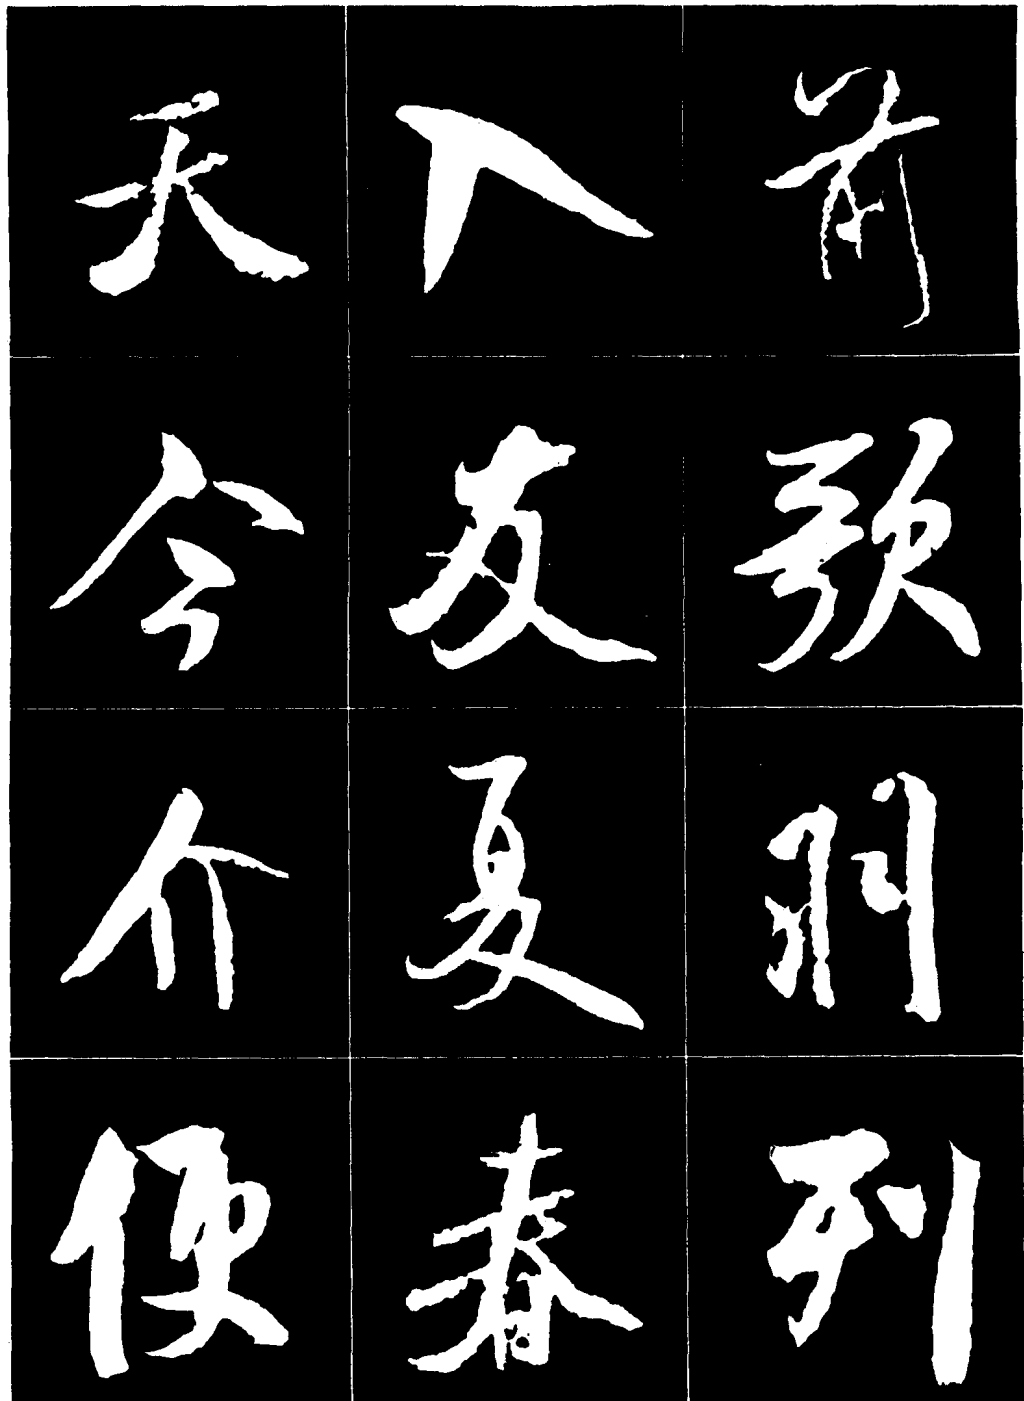 前歌羽列
入友夏春
天今介便